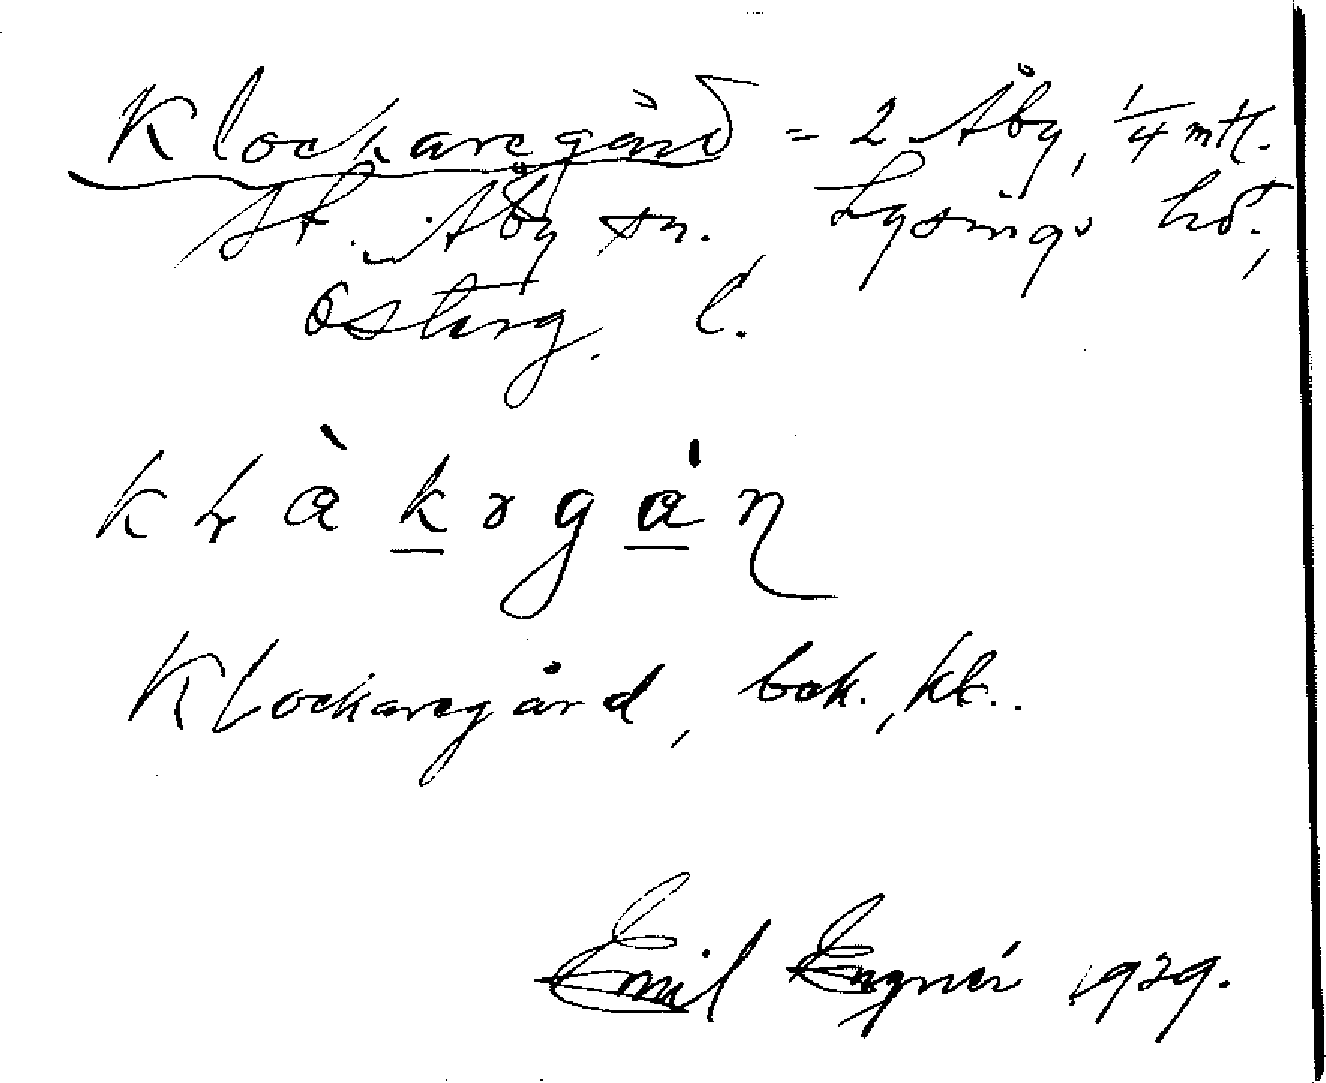 Klockaregård = 2 Åby, 1/4 mtl.
St. Åby sn. Lysings hd.,
Österg. l.
Klockaregård, bok., kk..
Emil 1929.